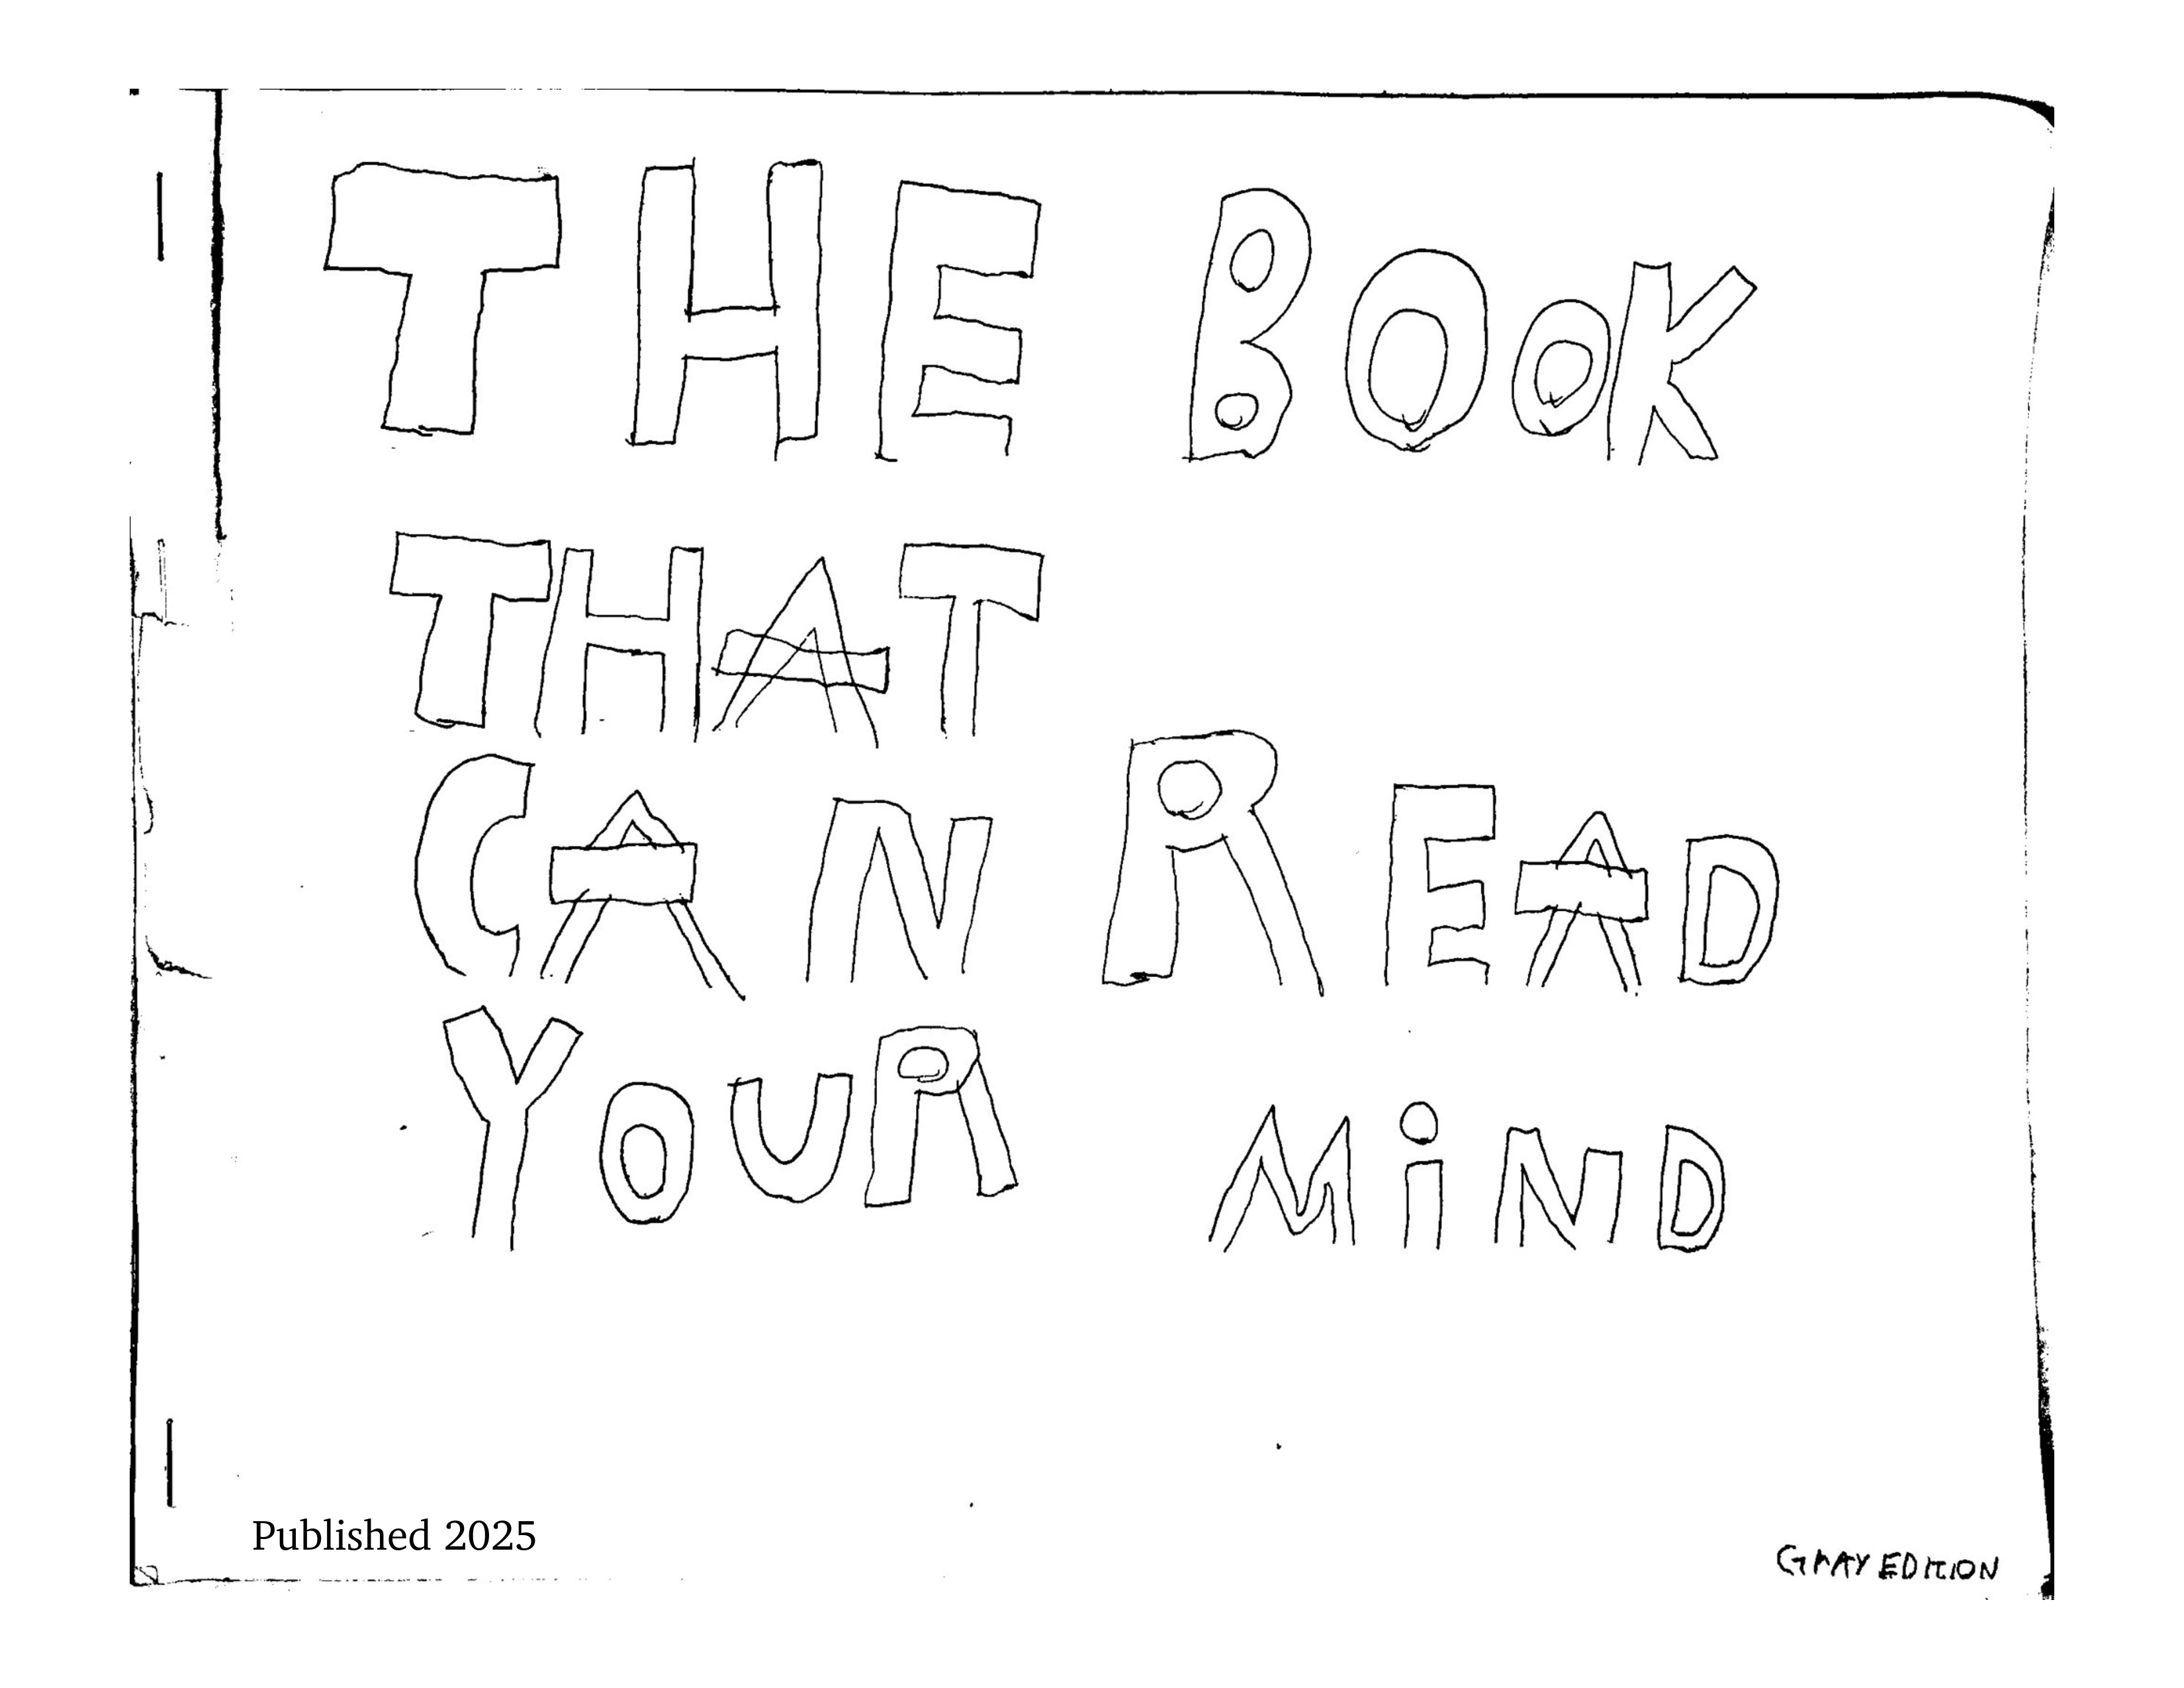 THE BOOK
THAT
CAN READ
YOUR MiND
Published 2025
GRAY EDITION